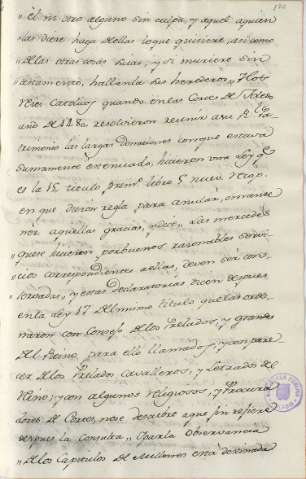 él ni otro alguno sin culpa, y aquel aquien
las diere haga dellas loque quisiere, asi como
de las otras cosas suias; y si muriere sin
testamento, hallanla sus herederos. Los
Reies Catolicos quando en las Cortes de Toledo
año de 1480 resolvieron reunir a su Rl. Pa
trimonio las largas Donaciones conque estava
sumamente extenuado, hicieron una Ley qe.
es la 15 titulo
en que dieron regla para anular, o mino
rar aquellas gracias, y dice: Las mercedes
quese hicieron por buenos, razonables servi
cios correspondientes aellas, deven ser con
servadas, y estas Declaratorias dicen despues
en la Ley 17 del mismo titulo que las orde
naron con Consejo de los Prelados, y grandes
del Reino para ello llamados, y con pare
cer de los Prelados Cavalleros, y Letrados del
Reino; y con algunos religiosos, y Procura
dores de Cortes, no se
despues la Consulta Que la Observancia
de los Capitulos de Millones está derivada